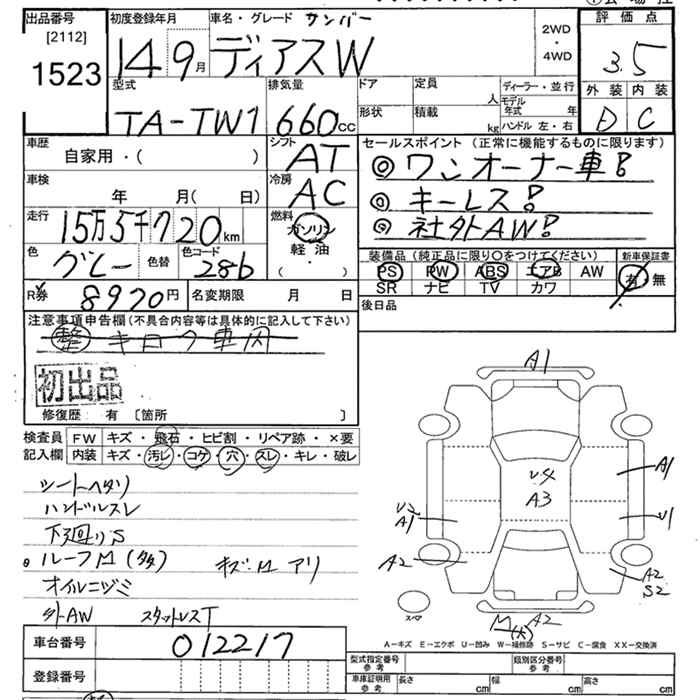 出品番号
[2112]
1523
初度登録年月
14 9月
車名・グレード サンバー
ディアスW
2WD
・
4WD
評価点
3.5
外装 内装
D C
型式
TA-TW1
排気量
660cc
ドア
形状
定員
人
積載
kg
ディーラー・並行
モデル年式 年
ハンドル 左・右
車歴
自家用・( )
シフト
AT
セールスポイント(正常に機能するものに限ります)
◎ワンオーナー車!
◎キーレス!
◎社外AW!
車検
年 月( 日)
冷房
AC
走行
15万5千720km
燃料
ガソリン
軽油
・( )
色
グレー
色替
色コード
286
装備品(純正品に限り○をつけてください)
PS PW ABS エアB AW
SR ナビ TV カワ
新車保証書
有・無
R券 8970円
名変期限 月 日
後日品
注意事項申告欄(不具合内容等は具体的に記入して下さい)
初出品
修復歴: 有 〔箇所 〕
検査員
記入欄
FW キズ・飛石・ヒビ割・リペア跡・×要
内装 キズ・汚レ・コゲ・穴・スレ・キレ・破レ
シートヘタリ
ハンドルスレ
下廻りS
ルーフM(多) キズ・M アリ
オイルニジミ
外AW スタットレスT
A1
U4
A3
A1
U1
U2
A1
A2
A2
S2
M(大) A2
スペア
A-キズ E-エクボ U-凹み W-補修跡 S-サビ C-腐食 XX-交換済
車台番号
012217
登録番号
型式指定番号
参考
類別区分番号
参考
車庫証明用
参考
長さ cm
幅 cm
高さ cm